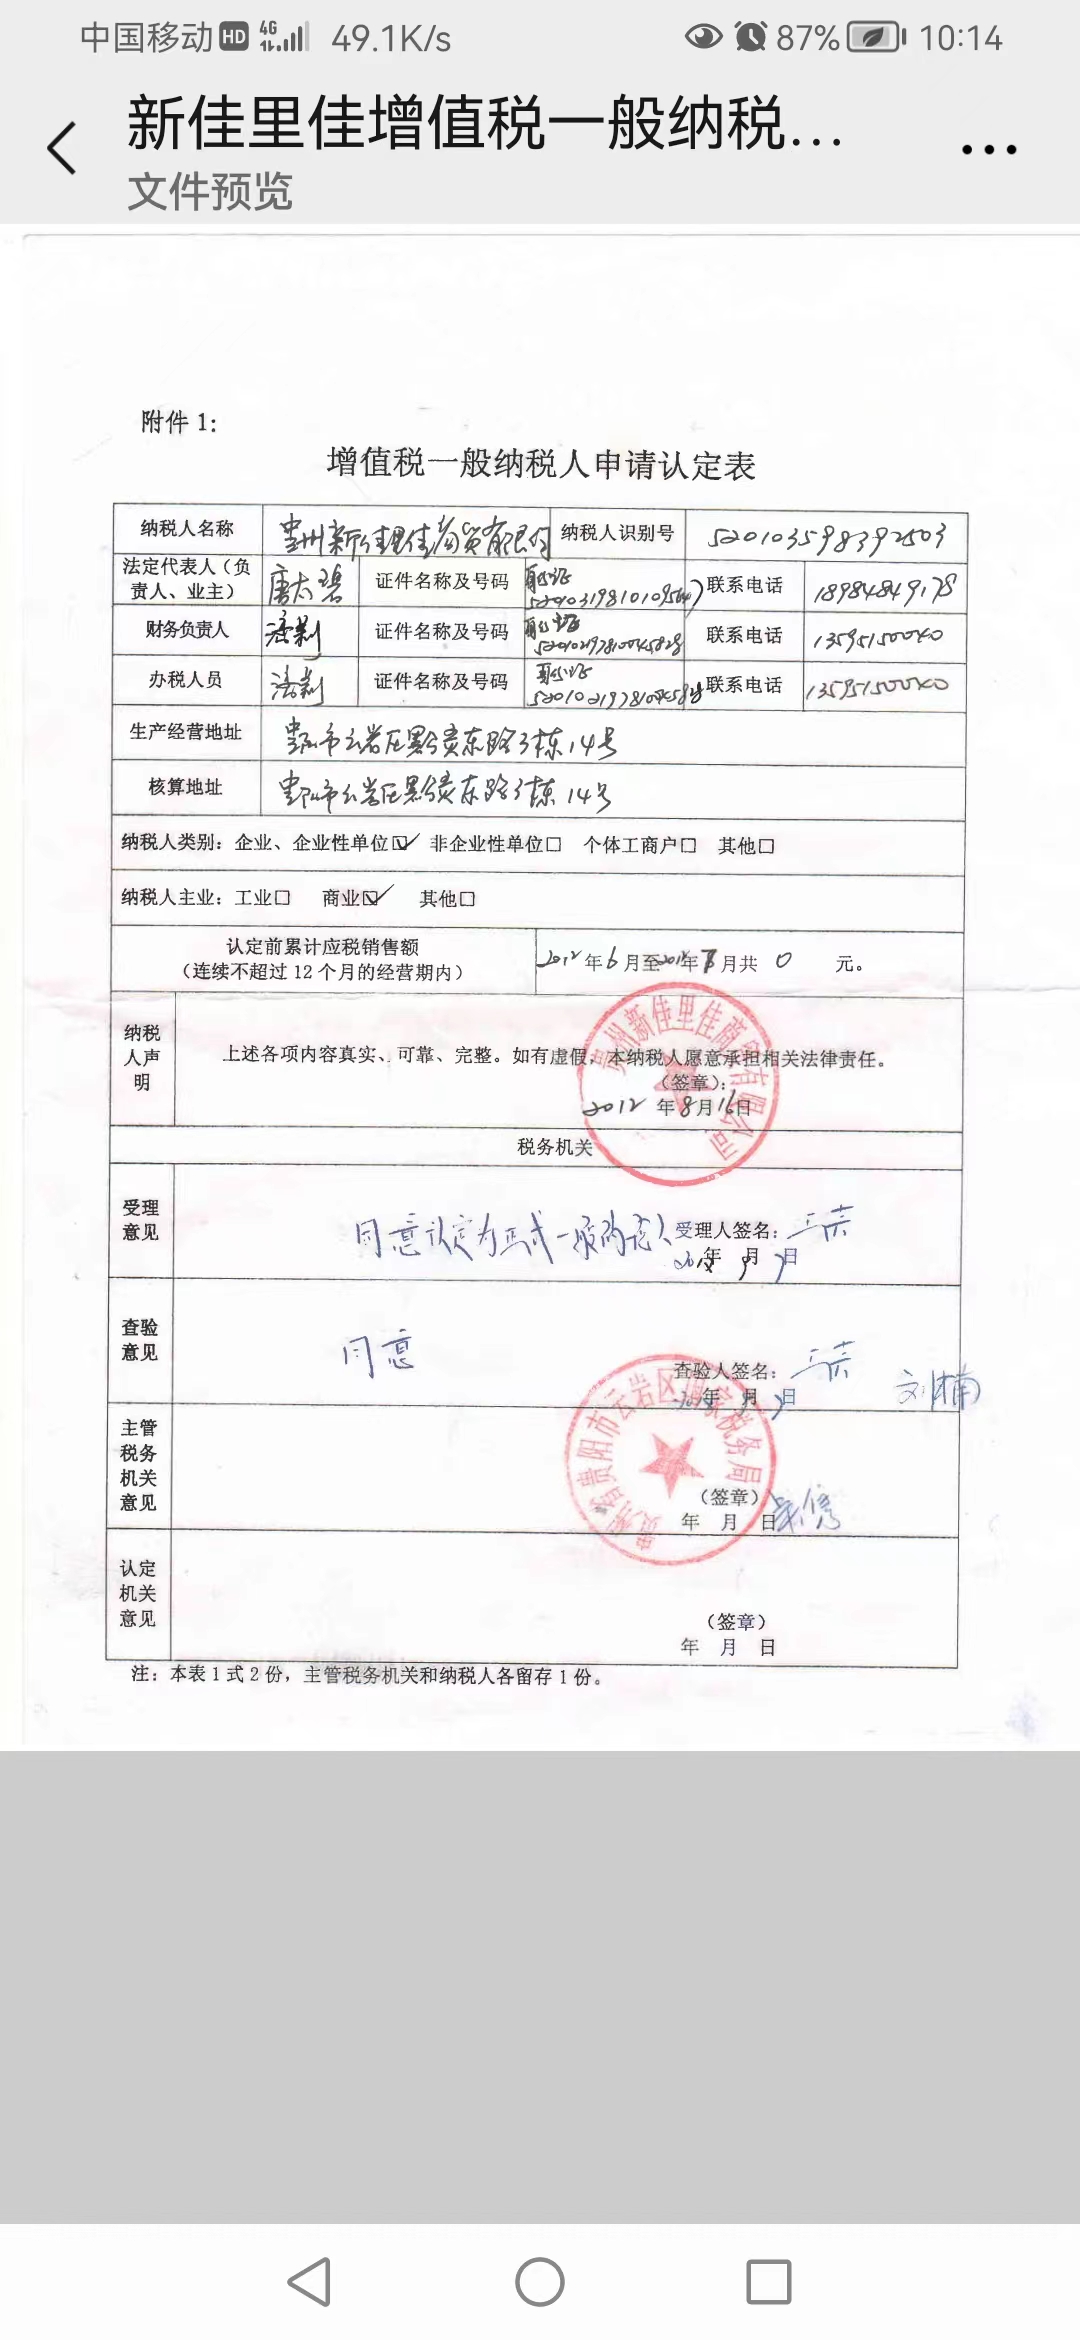 中国移动 HD 4G 49.1K/s 87% 10:14
新佳里佳增值税一般纳税...
文件预览
附件 1:
增值税一般纳税人申请认定表
纳税人名称 贵州新佳里佳商贸有限公司 纳税人识别号 520103598392503
法定代表人（负责人、业主） 唐太碧 证件名称及号码 联系电话 18984849178
财务负责人 证件名称及号码 联系电话 13595150040
办税人员 证件名称及号码 联系电话 13595150040
生产经营地址 贵阳市云岩区黔灵东路3栋14号
核算地址 贵阳市云岩区黔灵东路3栋14号
纳税人类别：企业、企业性单位☑ 非企业性单位□ 个体工商户□ 其他□
纳税人主业：工业□ 商业☑ 其他□
认定前累计应税销售额
（连续不超过 12 个月的经营期内） 2012年6月至2012年月共 0 元。
纳税人声明
上述各项内容真实、可靠、完整。如有虚假，本纳税人愿意承担相关法律责任。
（签章）：
2012 年8月16日
贵州新佳里佳商贸有限公司
税务机关
受理意见
同意认定为正式一般纳税人 受理人签名：
年 月 日
查验意见
同意
查验人签名： 刘楠
年 月 日
主管税务机关意见
贵州省贵阳市云岩区国家税务局
（签章）
年 月 日
认定机关意见
（签章）
年 月 日
注：本表 1 式 2 份，主管税务机关和纳税人各留存 1 份。